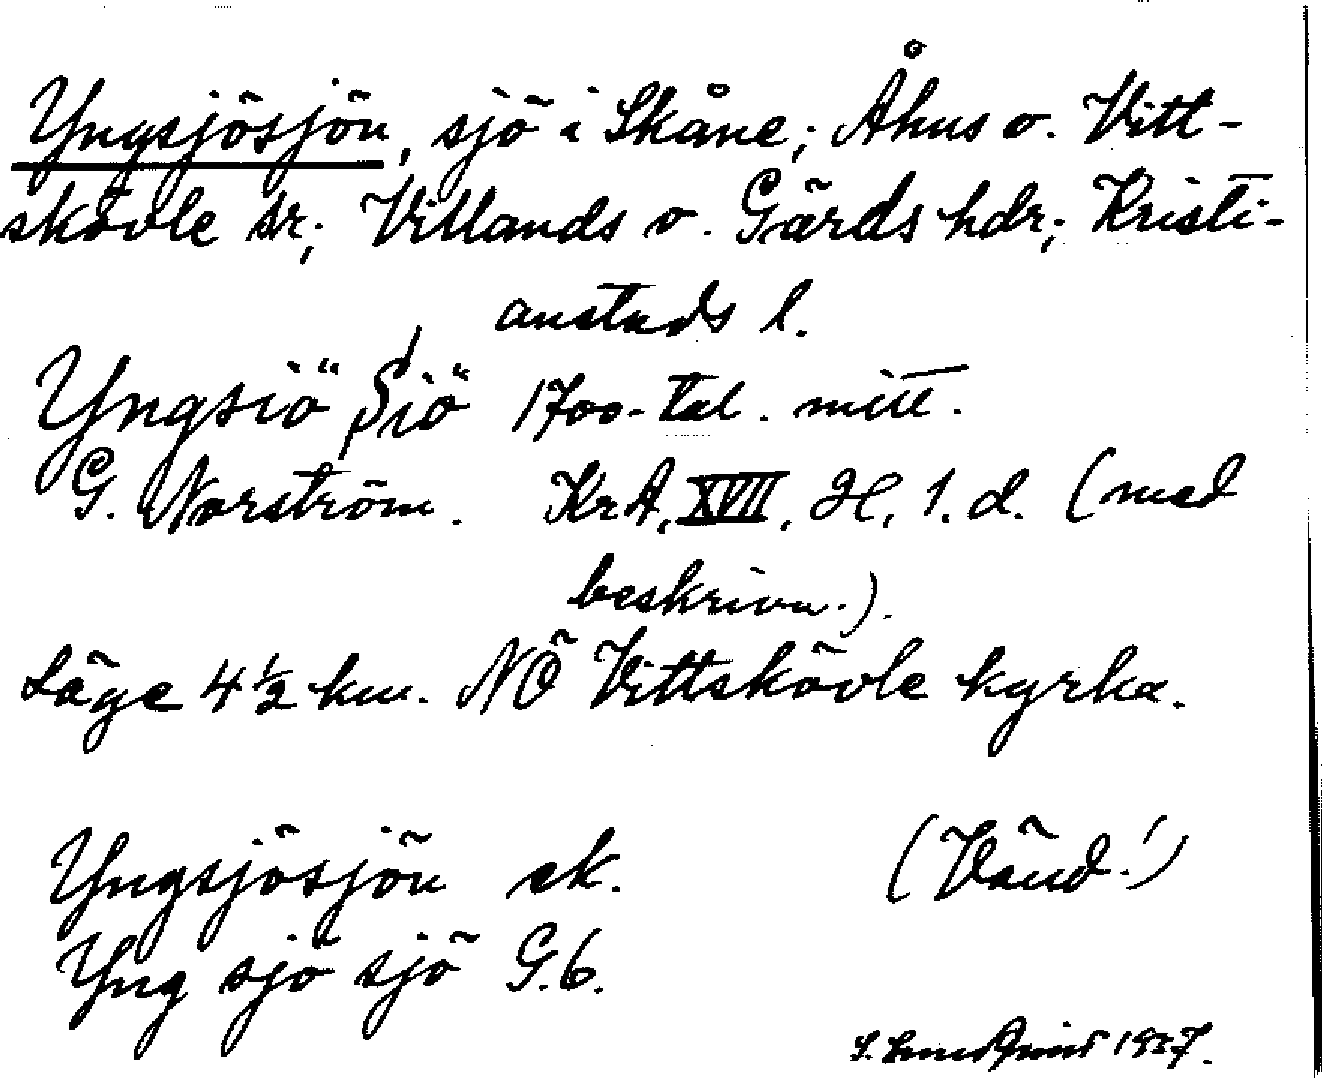 Yngsjösjön, sjö i Skåne; Åhus o. Vitt-
skövle sr; Villands o. Gärds hdr; Kristi-
anstads l.
Yngsiö Siö 1700-tal. mitt.
G. Norström. KrA, XVII, H, 1. d. (med
beskrivn.).
Läge 4 ½ km. NÖ Vittskövle kyrka.
Yngsjösjön ek. (Vänd!)
Yng sjö sjö G.6.
1927.